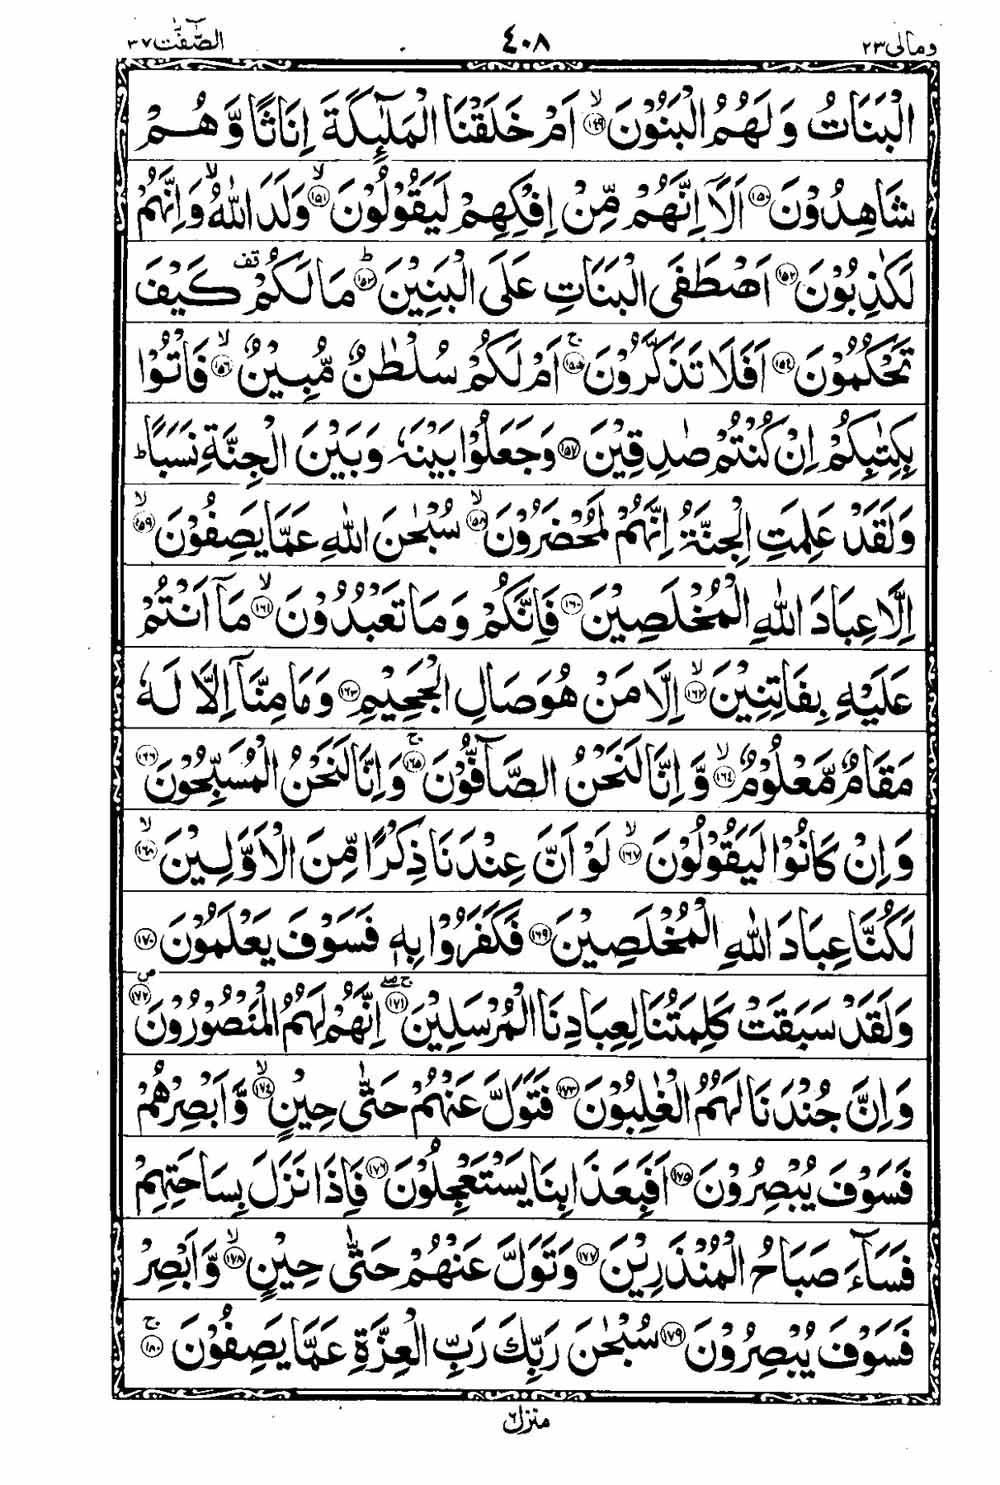 ومالی ٢٣ ٤٠٨ الصّٰٓفّٰت ٣٧
الْبَنَاتُ وَلَهُمُ الْبَنُوْنَ ۙ‏﴿۱۴۹﴾ اَمْ خَلَقْنَا الْمَلٰٓىِٕكَةَ اِنَاثًا وَّهُمْ
شَاهِدُوْنَ ﴿۱۵۰﴾ اَلَاۤ اِنَّهُمْ مِّنْ اِفْكِهِمْ لَيَقُوْلُوْنَ ۙ﴿۱۵۱﴾ وَلَدَ اللّٰهُ ۙ وَاِنَّهُمْ
لَكٰذِبُوْنَ ﴿۱۵۲﴾ اَصْطَفَى الْبَنَاتِ عَلَى الْبَنِيْنَ ؕ﴿۱۵۳﴾ مَا لَكُمْ قف كَيْفَ
تَحْكُمُوْنَ ﴿۱۵۴﴾ اَفَلَا تَذَكَّرُوْنَ ۚ﴿۱۵۵﴾ اَمْ لَكُمْ سُلْطٰنٌ مُّبِيْنٌ ۙ﴿۱۵۶﴾ فَاْتُوْا
بِكِتٰبِكُمْ اِنْ كُنْتُمْ صٰدِقِيْنَ ﴿۱۵۷﴾ وَجَعَلُوْا بَيْنَهٗ وَبَيْنَ الْجِنَّةِ نَسَبًا ؕ
وَلَقَدْ عَلِمَتِ الْجِنَّةُ اِنَّهُمْ لَمُحْضَرُوْنَ ۙ﴿۱۵۸﴾ سُبْحٰنَ اللّٰهِ عَمَّا يَصِفُوْنَ ۙ﴿۱۵۹﴾
اِلَّا عِبَادَ اللّٰهِ الْمُخْلَصِيْنَ ﴿۱۶۰﴾ فَاِنَّكُمْ وَمَا تَعْبُدُوْنَ ۙ﴿۱۶۱﴾ مَاۤ اَنْتُمْ
عَلَيْهِ بِفَاتِنِيْنَ ۙ﴿۱۶۲﴾ اِلَّا مَنْ هُوَ صَالِ الْجَحِيْمِ ﴿۱۶۳﴾ وَمَا مِنَّاۤ اِلَّا لَهٗ
مَقَامٌ مَّعْلُوْمٌ ۙ﴿۱۶۴﴾ وَّاِنَّا لَنَحْنُ الصَّآفُّوْنَ ۚ﴿۱۶۵﴾ وَاِنَّا لَنَحْنُ الْمُسَبِّحُوْنَ ﴿۱۶۶﴾
وَاِنْ كَانُوْا لَيَقُوْلُوْنَ ۙ﴿۱۶۷﴾ لَوْ اَنَّ عِنْدَنَا ذِكْرًا مِّنَ الْاَوَّلِيْنَ ۙ﴿۱۶۸﴾
لَكُنَّا عِبَادَ اللّٰهِ الْمُخْلَصِيْنَ ﴿۱۶۹﴾ فَكَفَرُوْا بِهٖ فَسَوْفَ يَعْلَمُوْنَ ﴿۱۷۰﴾
وَلَقَدْ سَبَقَتْ كَلِمَتُنَا لِعِبَادِنَا الْمُرْسَلِيْنَ ۚۖ﴿۱۷۱﴾ اِنَّهُمْ لَهُمُ الْمَنْصُوْرُوْنَ ص﴿۱۷۲﴾
وَاِنَّ جُنْدَنَا لَهُمُ الْغٰلِبُوْنَ ﴿۱۷۳﴾ فَتَوَلَّ عَنْهُمْ حَتّٰى حِيْنٍ ۙ﴿۱۷۴﴾ وَّاَبْصِرْهُمْ
فَسَوْفَ يُبْصِرُوْنَ ﴿۱۷۵﴾ اَفَبِعَذَابِنَا يَسْتَعْجِلُوْنَ ﴿۱۷۶﴾ فَاِذَا نَزَلَ بِسَاحَتِهِمْ
فَسَآءَ صَبَاحُ الْمُنْذَرِيْنَ ﴿۱۷۷﴾ وَتَوَلَّ عَنْهُمْ حَتّٰى حِيْنٍ ۙ﴿۱۷۸﴾ وَّاَبْصِرْ
فَسَوْفَ يُبْصِرُوْنَ ﴿۱۷۹﴾ سُبْحٰنَ رَبِّكَ رَبِّ الْعِزَّةِ عَمَّا يَصِفُوْنَ ۚ﴿۱۸۰﴾
منزل ٦